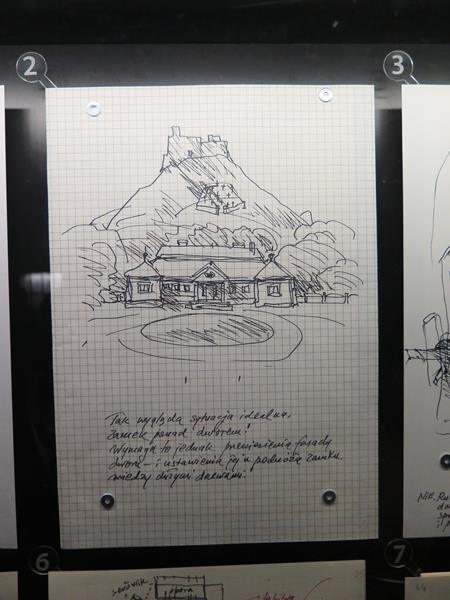 2
3
Tak wygląda sytuacja idealna,
zamek ponad dworem!
Wymaga to jednak przeniesienia fasady
dworu – i ustawienia jej u podnóża zamku,
między dużymi drzewami!
Nik. Ru
6
7
opera
25
64